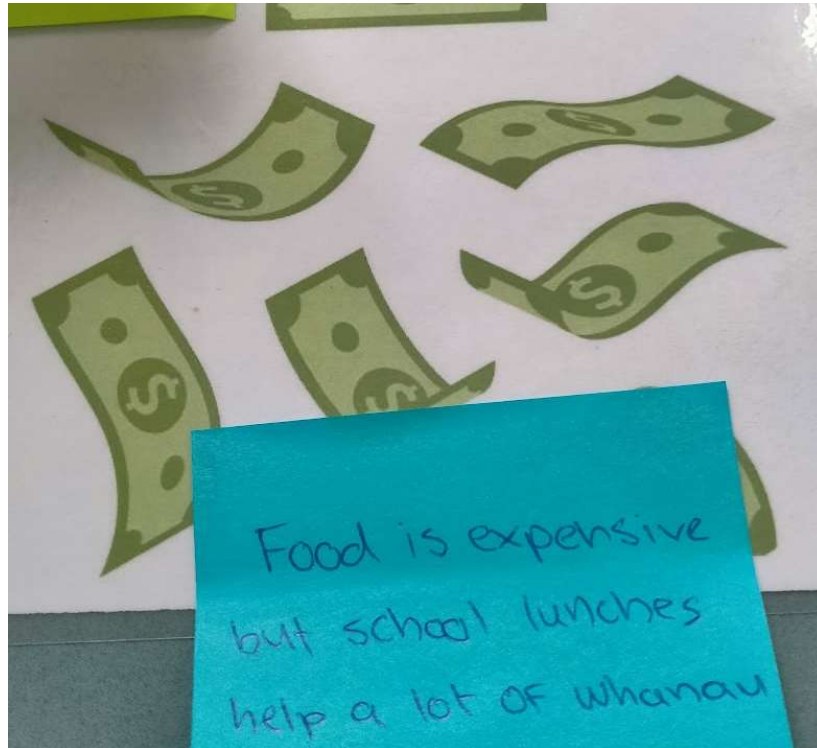 Food is expensive
but school lunches
help a lot of whanau